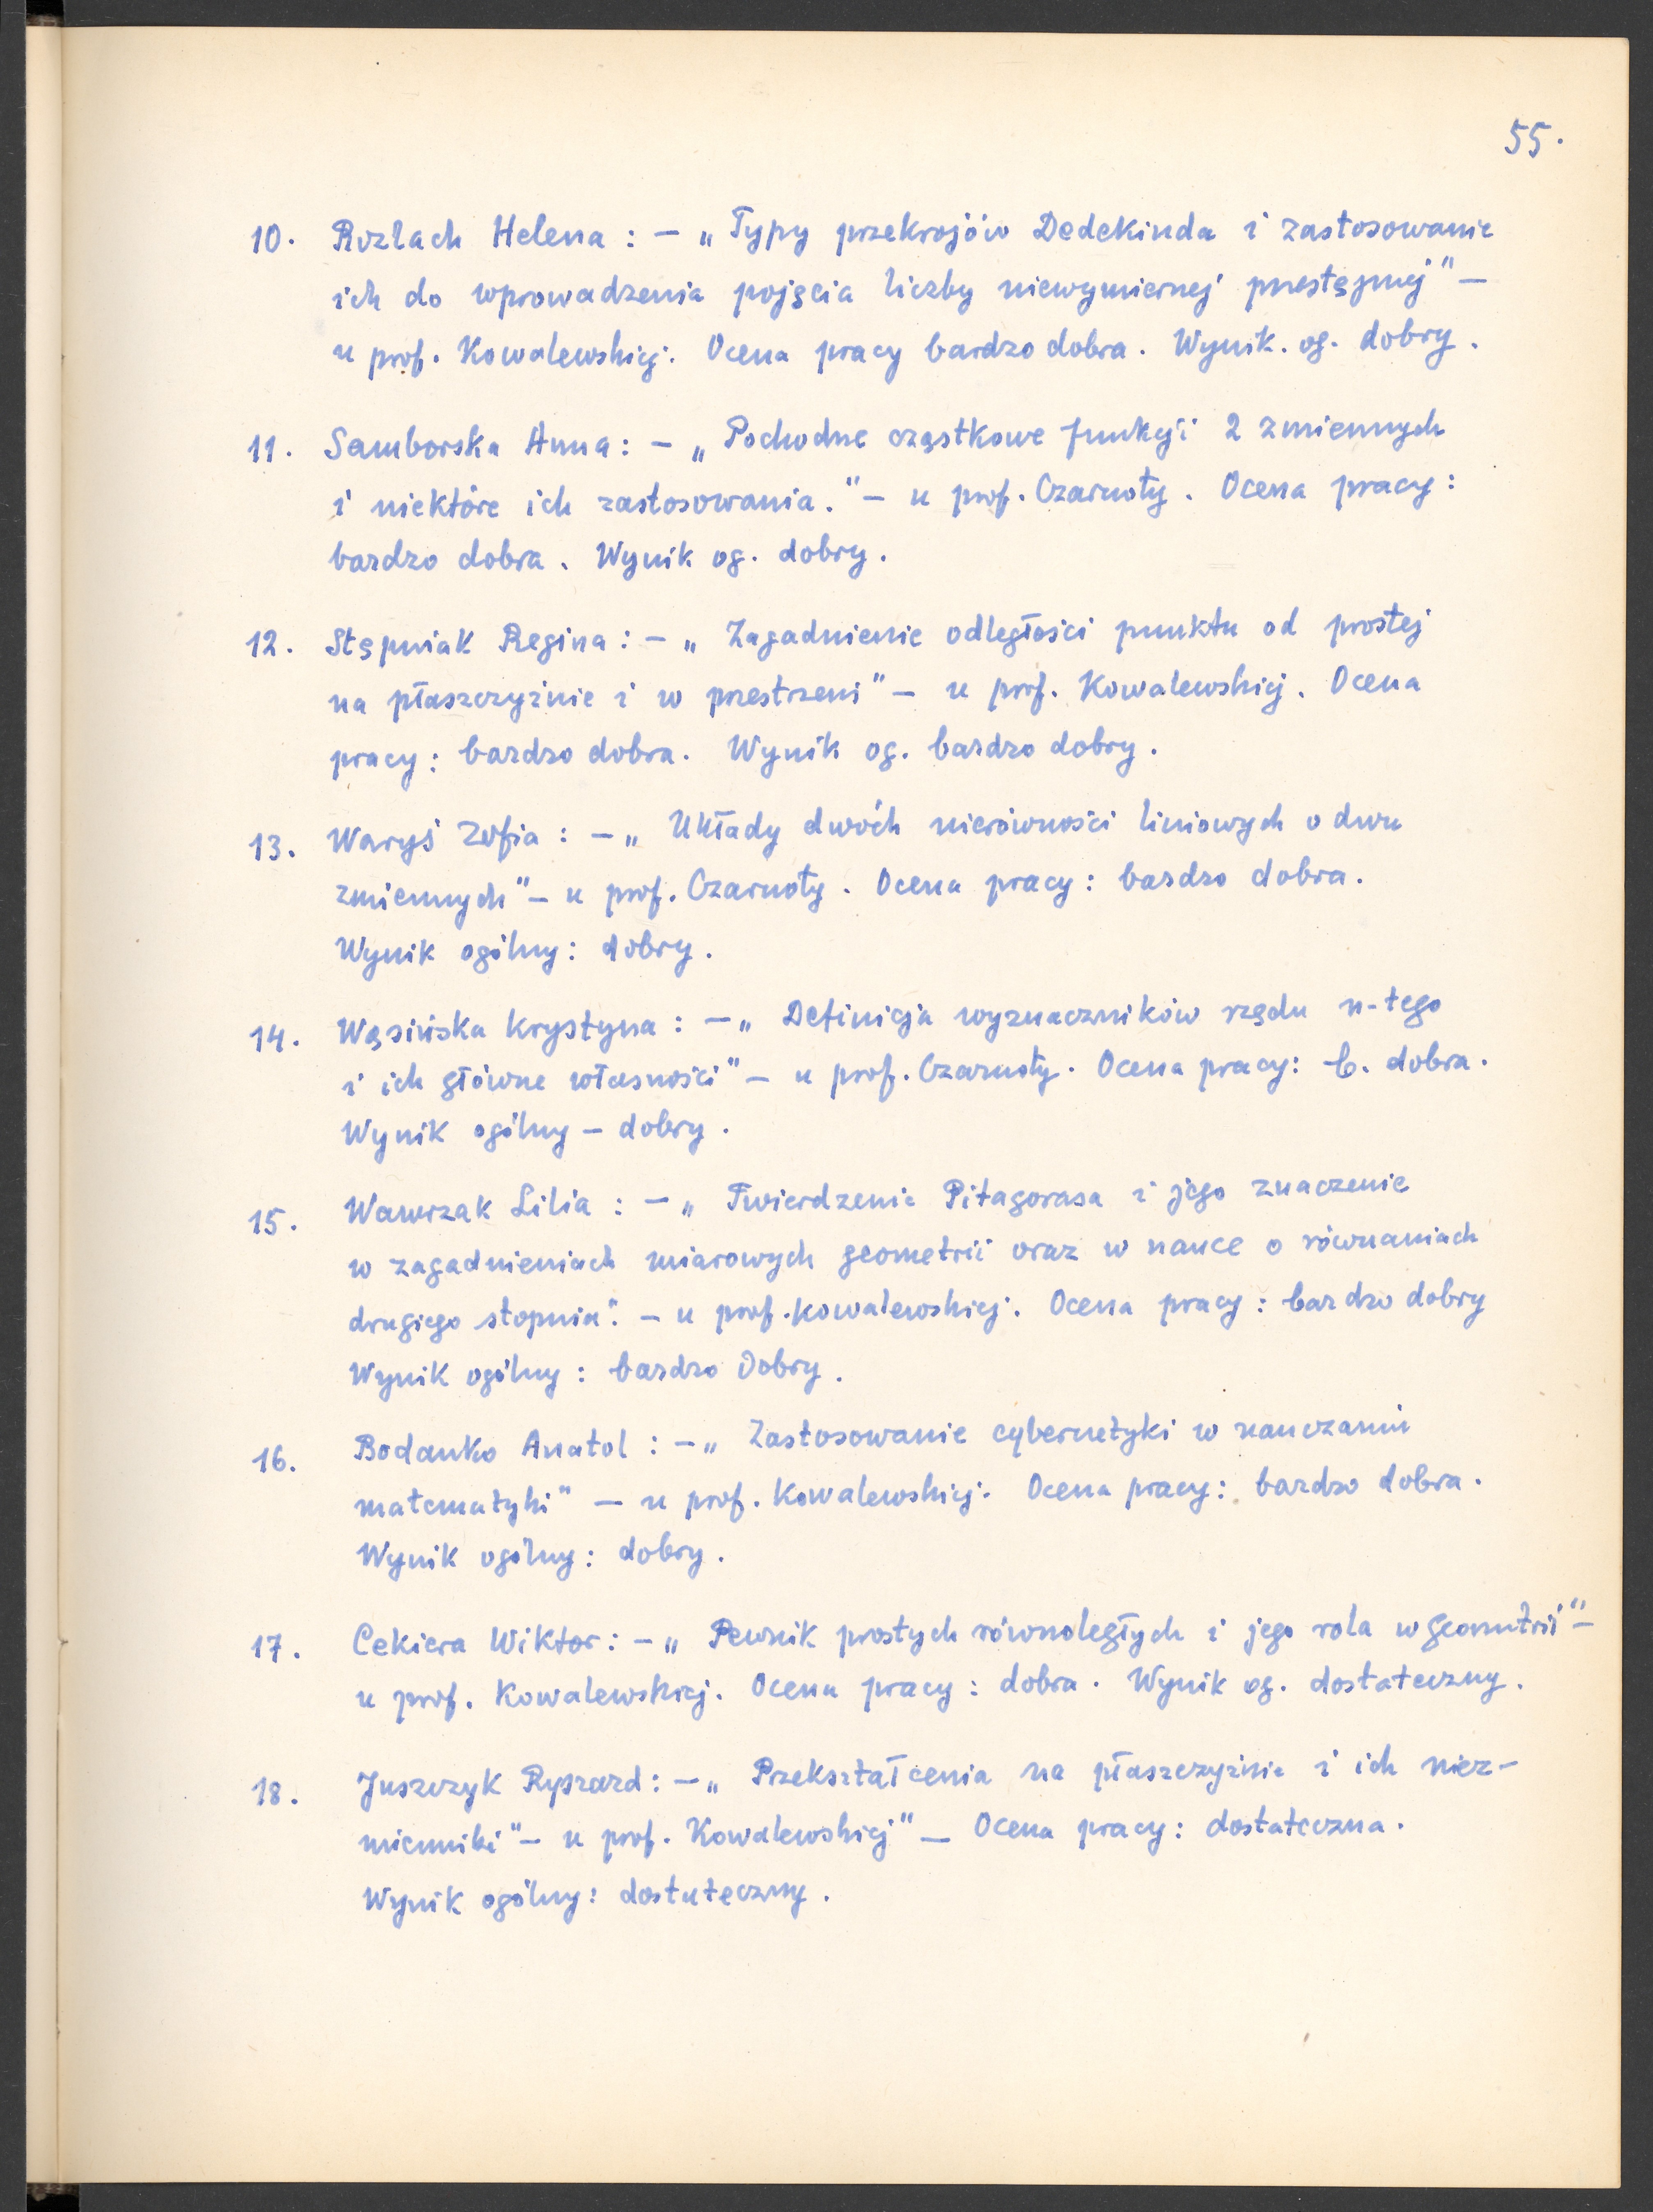 55.
10. Rozlach Helena : – „Typy przekrojów Dedekinda i zastosowanie
ich do wprowadzenia pojęcia liczby niewymiernej przestępnej" –
u prof. Kowalewskiej. Ocena pracy bardzo dobra. Wynik. og. dobry.
11. Samborska Anna: – „Pochodne cząstkowe funkcji 2 zmiennych
i niektóre ich zastosowania." – u prof. Czarnoty. Ocena pracy:
bardzo dobra. Wynik og. dobry.
12. Stępniak Regina: – „Zagadnienie odległości punktu od prostej
na płaszczyźnie i w przestrzeni" – u prof. Kowalewskiej. Ocena
pracy: bardzo dobra. Wynik og. bardzo dobry.
13. Waryś Zofia : – „Układy dwóch nierówności liniowych o dwu
zmiennych" – u prof. Czarnoty. Ocena pracy: bardzo dobra.
Wynik ogólny: dobry.
14. Wąsińska Krystyna : – „Definicja wyznaczników rzędu n-tego
i ich główne własności" – u prof. Czarnoty. Ocena pracy: b. dobra.
Wynik ogólny – dobry.
15. Wawrzak Lilia : – „Twierdzenie Pitagorasa i jego znaczenie
w zagadnieniach miarowych geometrii oraz w nauce o równaniach
drugiego stopnia". – u prof. Kowalewskiej. Ocena pracy: bardzo dobry
Wynik ogólny: bardzo Dobry.
16. Bodanko Anatol : – „Zastosowanie cybernetyki w nauczaniu
matematyki" – u prof. Kowalewskiej. Ocena pracy: bardzo dobra.
Wynik ogólny: dobry.
17. Cekiera Wiktor: – „Pewnik prostych równoległych i jego rola w geometrii" –
u prof. Kowalewskiej. Ocena pracy: dobra. Wynik og. dostateczny.
18. Juszczyk Ryszard: – „Przekształcenia na płaszczyźnie i ich niez-
mienniki" – u prof. Kowalewskiej" – Ocena pracy: dostateczna.
Wynik ogólny: dostateczny.